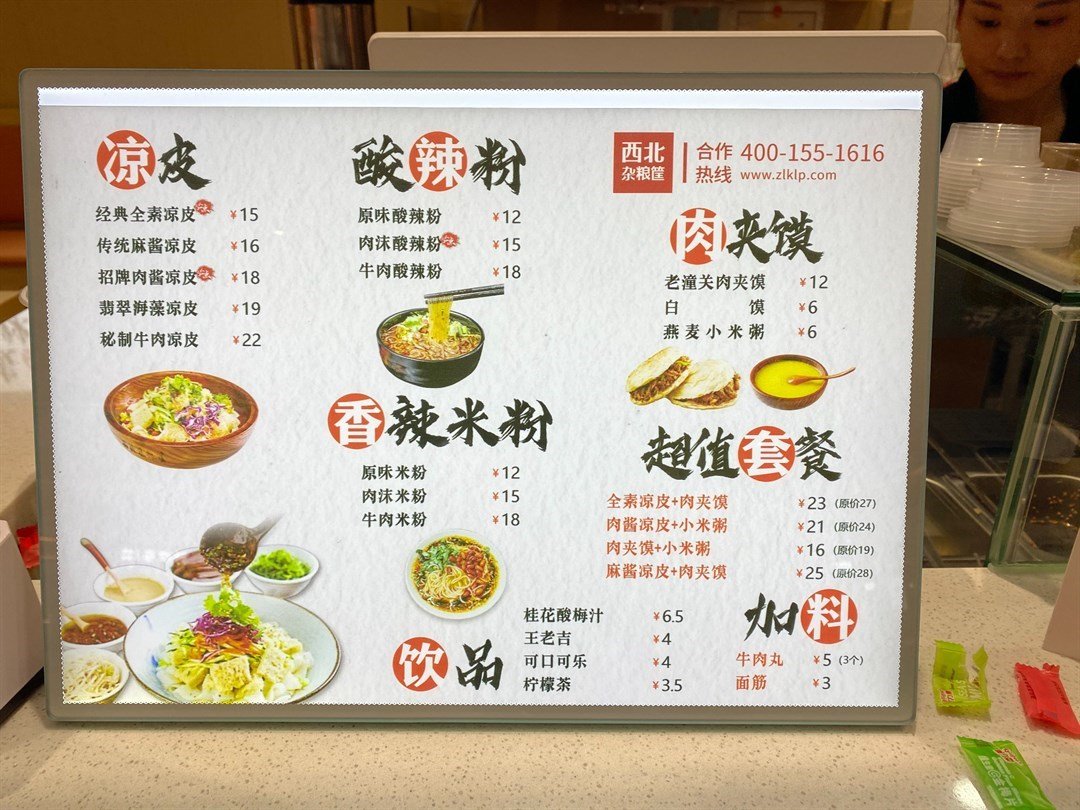 凉皮
经典全素凉皮 ¥15
传统麻酱凉皮 ¥16
招牌肉酱凉皮 ¥18
翡翠海藻凉皮 ¥19
秘制牛肉凉皮 ¥22
酸辣粉
原味酸辣粉 ¥12
肉沫酸辣粉 ¥15
牛肉酸辣粉 ¥18
香辣米粉
原味米粉 ¥12
肉沫米粉 ¥15
牛肉米粉 ¥18
饮品
桂花酸梅汁 ¥6.5
王老吉 ¥4
可口可乐 ¥4
柠檬茶 ¥3.5
西北
杂粮筐
合作
热线
400-155-1616
www.zlklp.com
肉夹馍
老潼关肉夹馍 ¥12
白馍 ¥6
燕麦小米粥 ¥6
超值套餐
全素凉皮+肉夹馍 ¥23 (原价27)
肉酱凉皮+小米粥 ¥21 (原价24)
肉夹馍+小米粥 ¥16 (原价19)
麻酱凉皮+肉夹馍 ¥25 (原价28)
加料
牛肉丸 ¥5 (3个)
面筋 ¥3